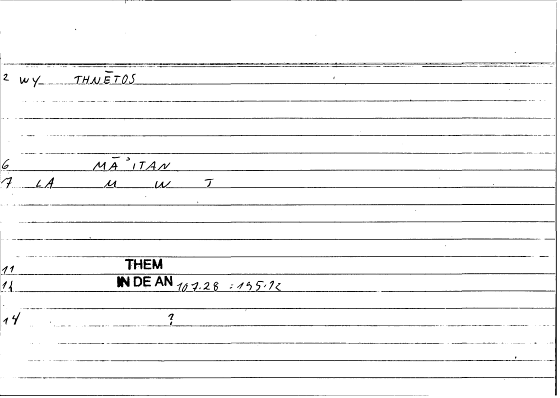 2 WY THNĒTOS
6 MĀʾITAN
7 LA M W T
11 THEM
12 IN DE AN 107.28 : 195.12
14 ?